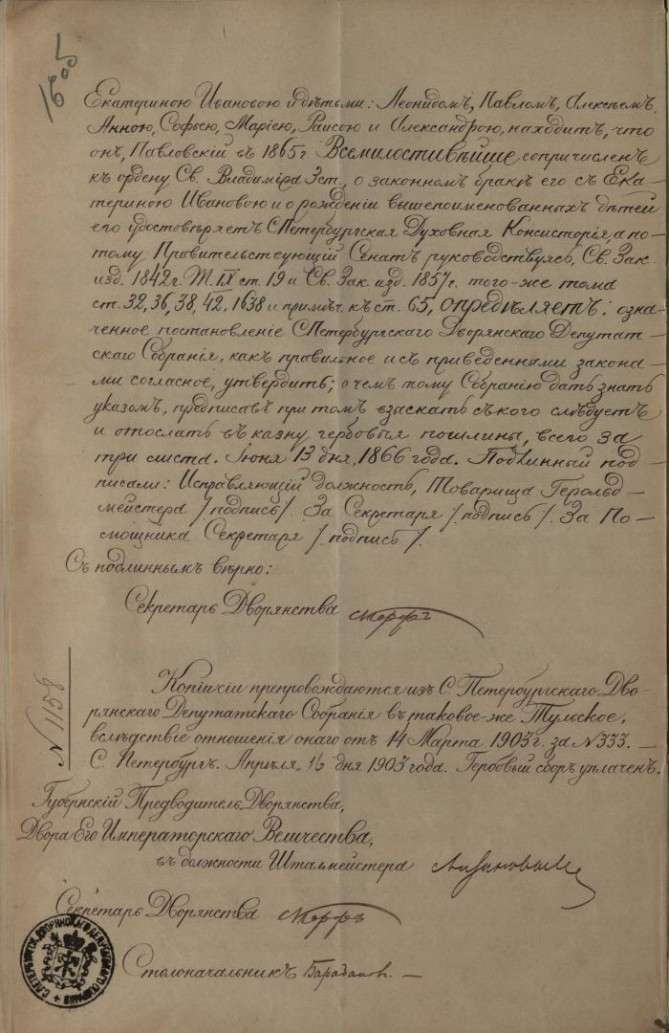 1600
Екатериною Ивановою и дѣтьми: Леонидомъ, Павломъ, Алексѣемъ,
Анною, Софьею, Маріею, Раисою и Александрою, находитъ, что
онъ, Павловскій въ 1865 г. Всемилостивѣйше сопричисленъ
къ ордену Св. Владиміра 3 ст., о законномъ бракѣ его съ Ека-
териною Ивановою и о рожденіи вышепоименованныхъ дѣтей
его удостовѣряетъ С Петербургская Духовная Консисторія, а по-
тому Правительствующій Сенатъ руководствуясь, Св. Зак.
изд. 1842 г. Т. IX ст. 19 и Св. Зак. изд. 1857 г. того-же тома
ст. 32, 36, 38, 42, 1638 и примѣч. къ ст. 65, опредѣляетъ: озна-
ченное постановленіе С Петербургскаго Дворянскаго Депутат-
скаго Собранія, какъ правильное и съ приведенными закона-
ми согласное, утвердить; о чемъ тому Собранію дать знать
указомъ, предписавъ при томъ взыскать съ кого слѣдуетъ
и отослать въ казну гербовыя пошлины, всего за
три листа. Іюня 13 дня, 1866 года. Подлинный под-
писали: Исправляющій должность, Товарища Герольд-
мейстера /подпись/. За Секретаря /подпись/. За По-
мощника Секретаря /подпись/.
Съ подлиннымъ вѣрно:
Секретарь Дворянства
N 1158
Копіи сіи препровождаются изъ С. Петербургскаго Дво-
рянскаго Депутатскаго Собранія въ таковое-же Тульское,
вслѣдствіе отношенія онаго отъ 14 Марта 1903 г. за N 333. —
С. Петербургъ. Апрѣля 16 дня 1903 года. Гербовый сборъ уплаченъ.
Губернскій Предводитель Дворянства,
Двора Его Императорскаго Величества,
въ должности Шталмейстера
Секретарь Дворянства
Столоначальникъ